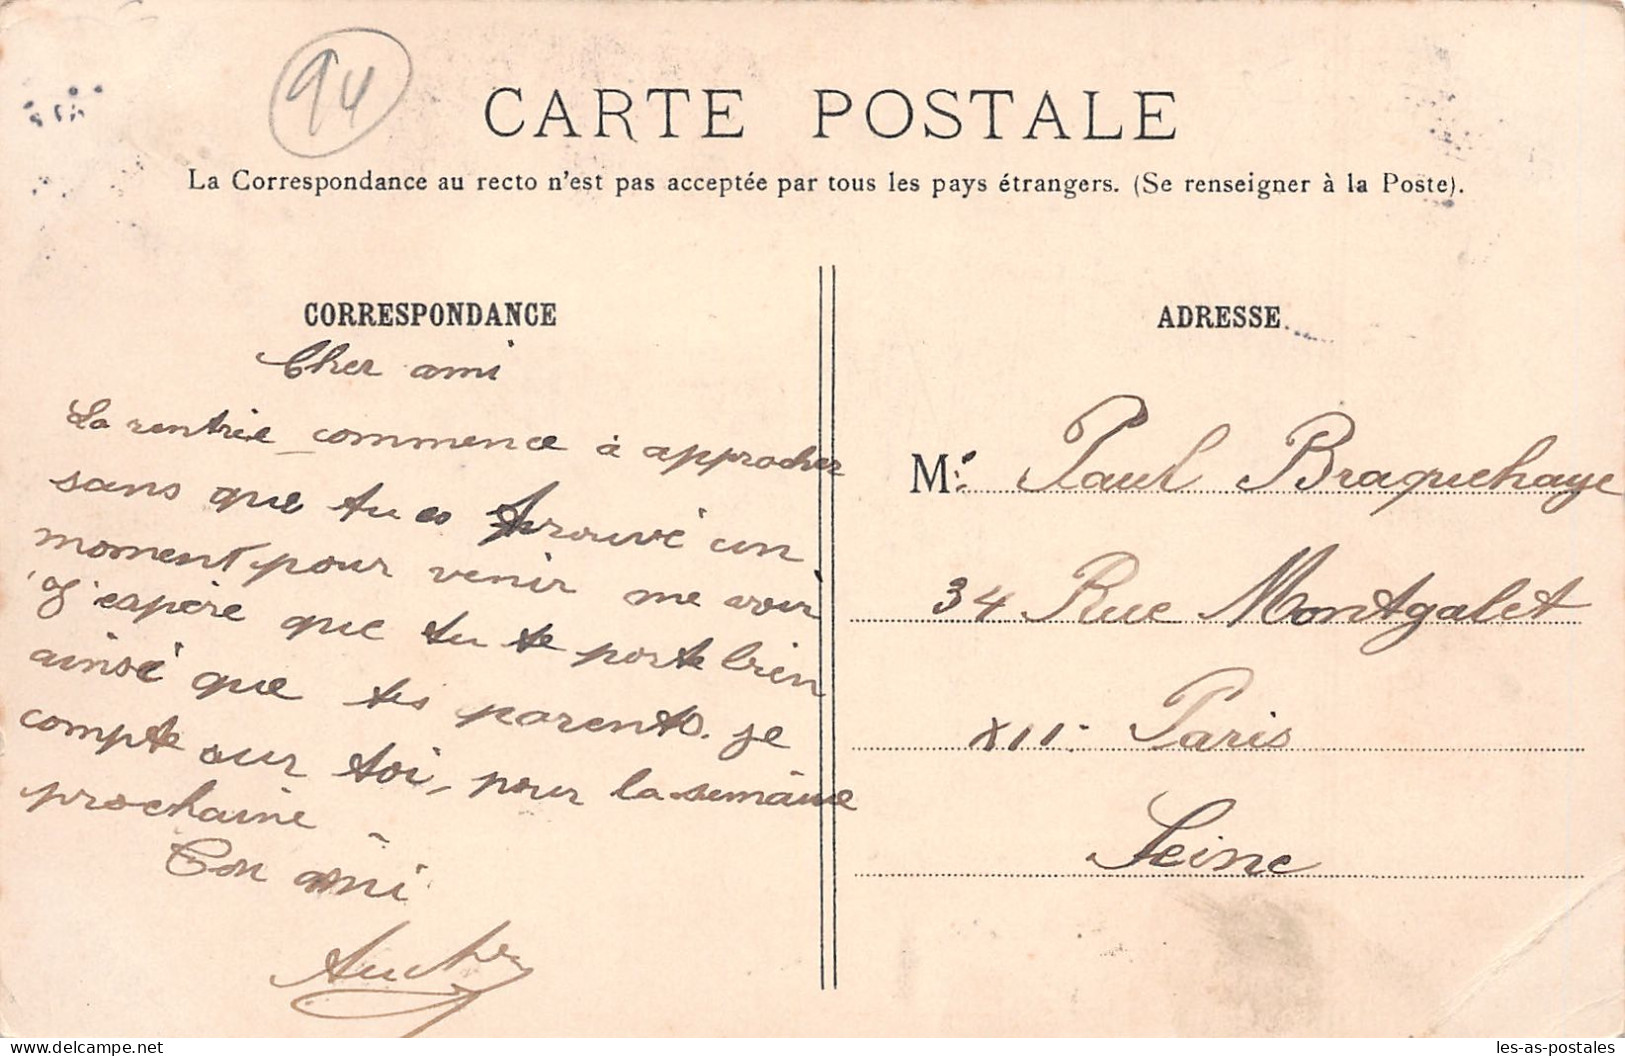 94
CARTE POSTALE
La Correspondance au recto n'est pas acceptée par tous les pays étrangers. (Se renseigner à la Poste).
CORRESPONDANCE
Cher ami
La rentrée commence à approcher
sans que tu es trouvé un
moment pour venir me voir
J'espère que tu te porte bien
ainsi que tes parents. je
compte sur toi, pour la semaine
prochaine
Ton ami
ADRESSE
M. Paul Braquehaye
34 Rue Montgalet
XII Paris
Seine
delcampe.net
les-as-postales